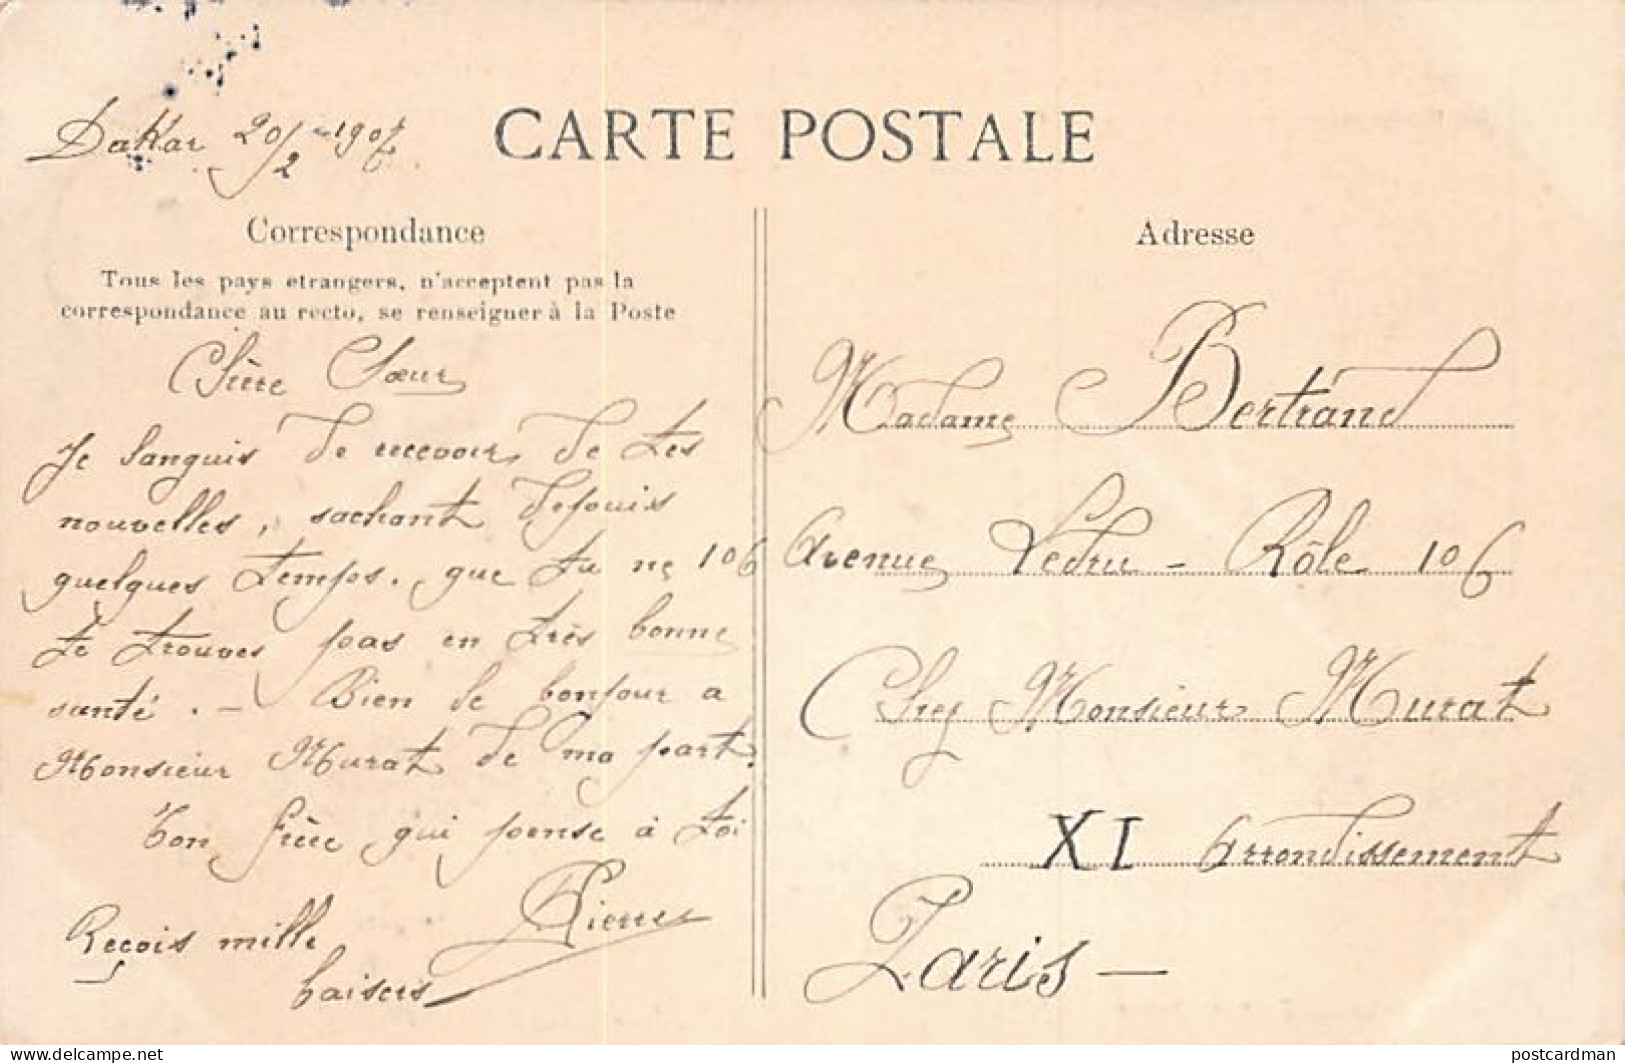 Dakar 20/2 - 1907
CARTE POSTALE
Correspondance
Tous les pays etrangers, n'acceptent pas la
correspondance au recto, se renseigner à la Poste
Chère Sœur
Je languis de recevoir de tes
nouvelles, sachant depuis
quelques temps. que tu ne
te trouves pas en très bonne
santé. - Bien le bonjour a
Monsieur Murat de ma part.
Ton frère qui pense à toi
Pierre
Reçois mille
baisers
Adresse
Madame Bertrand
106 Avenue Ledru - Rôle 106
Chez Monsieur Murat
XI Arrondissement
Paris -
delcampe.net
postcardman